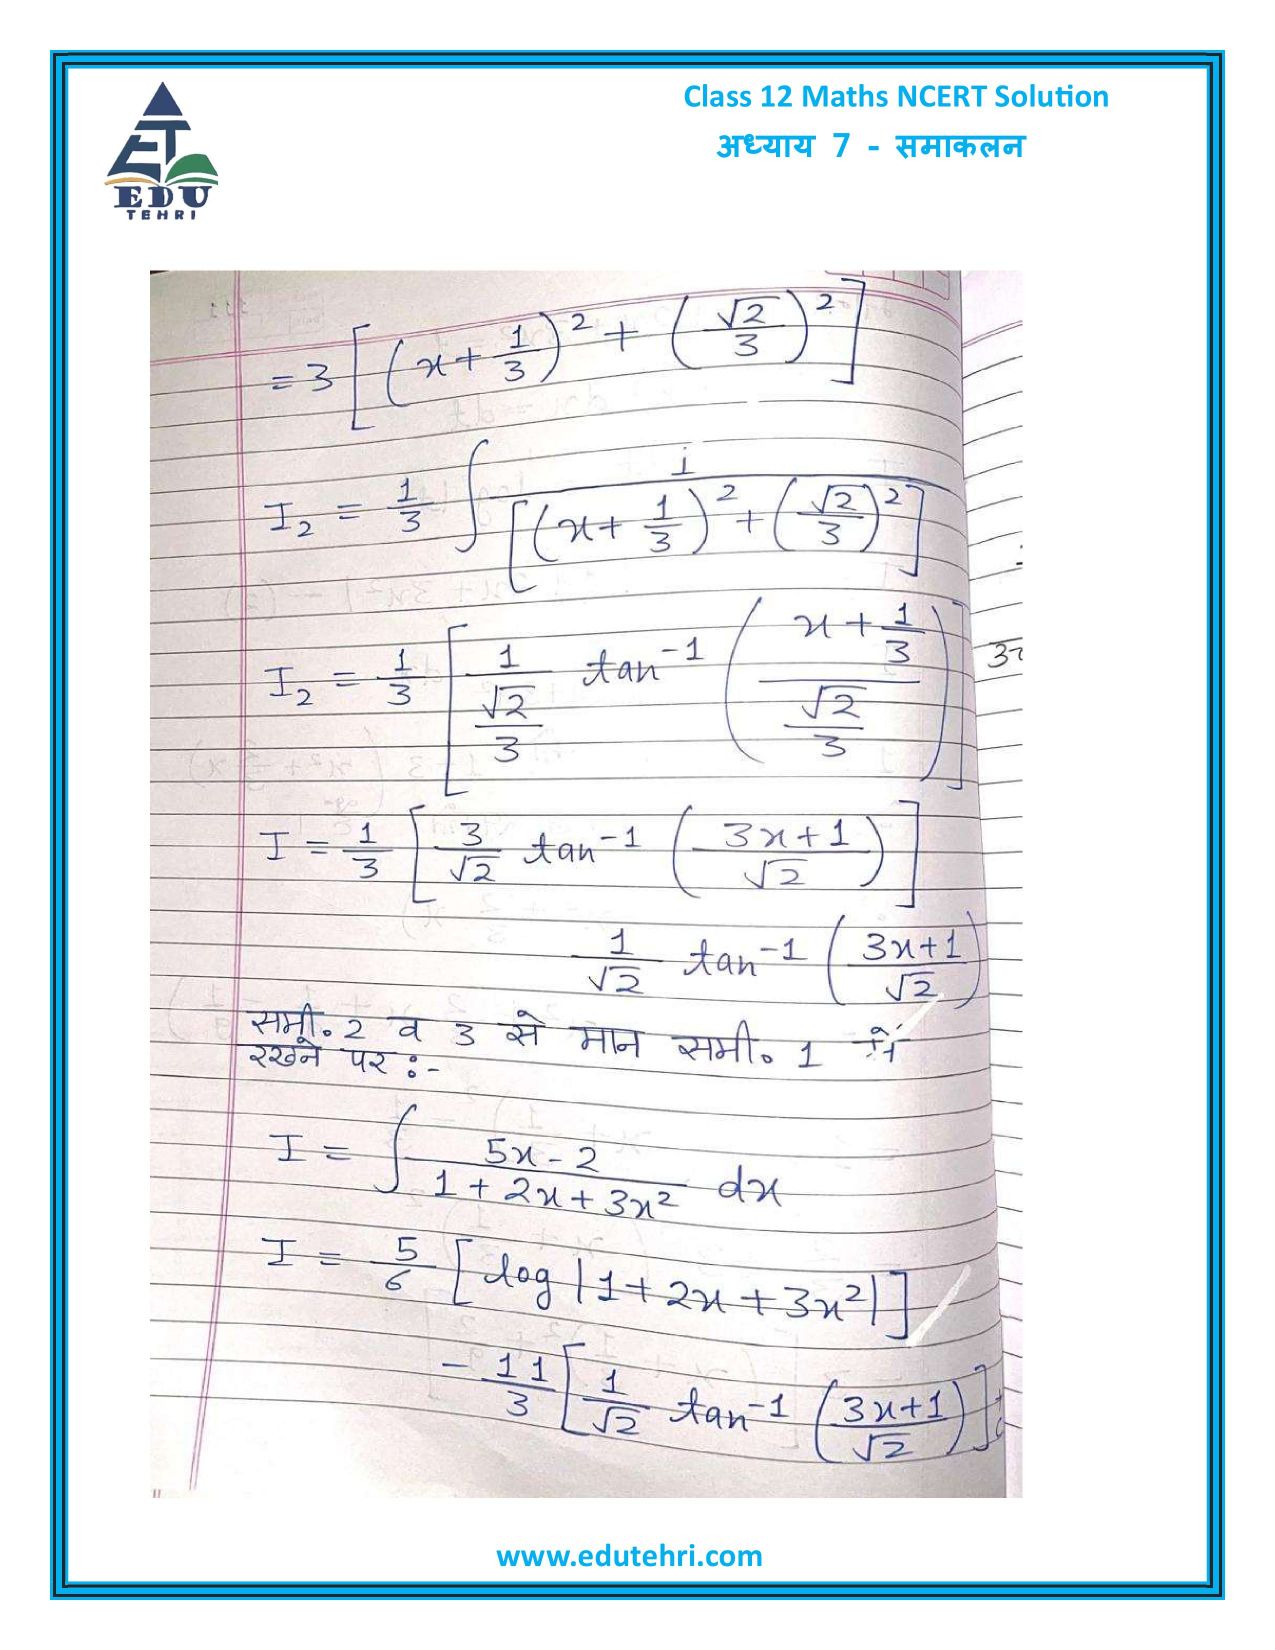 Class 12 Maths NCERT Solution
अध्याय 7 - समाकलन
EDU
TEHRI
= 3 [ (x + 1/3)² + (√2/3)² ]
I₂ = 1/3 ∫ 1 / [ (x + 1/3)² + (√2/3)² ]
I₂ = 1/3 [ 1/(√2/3) tan⁻¹ ( (x + 1/3) / (√2/3) ) ]
I = 1/3 [ 3/√2 tan⁻¹ ( (3x+1)/√2 ) ]
1/√2 tan⁻¹ ( (3x+1)/√2 )
समी. 2 व 3 से मान समी. 1 में
रखने पर :-
I = ∫ (5x - 2)/(1 + 2x + 3x²) dx
I = 5/6 [ log |1 + 2x + 3x²| ]
- 11/3 [ 1/√2 tan⁻¹ ( (3x+1)/√2 ) ]
www.edutehri.com